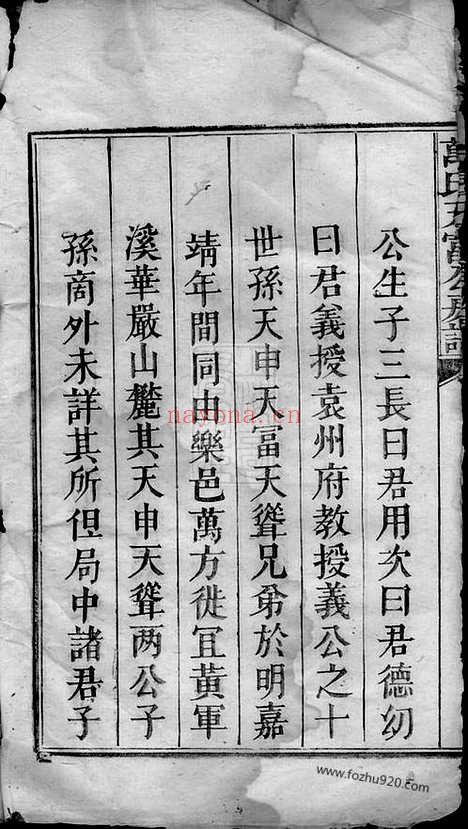 萬氏天富公房譜
公生子三長曰君用次曰君德幼
曰君義授袁州府教授義公之十
世孫天申天富天聳兄弟於明嘉
靖年間同由樂邑萬方徙冝黃軍
溪華嚴山麓其天申天聳两公子
孫商外未詳其所但局中諸君子
nayona.cn
www.fozhu920.com